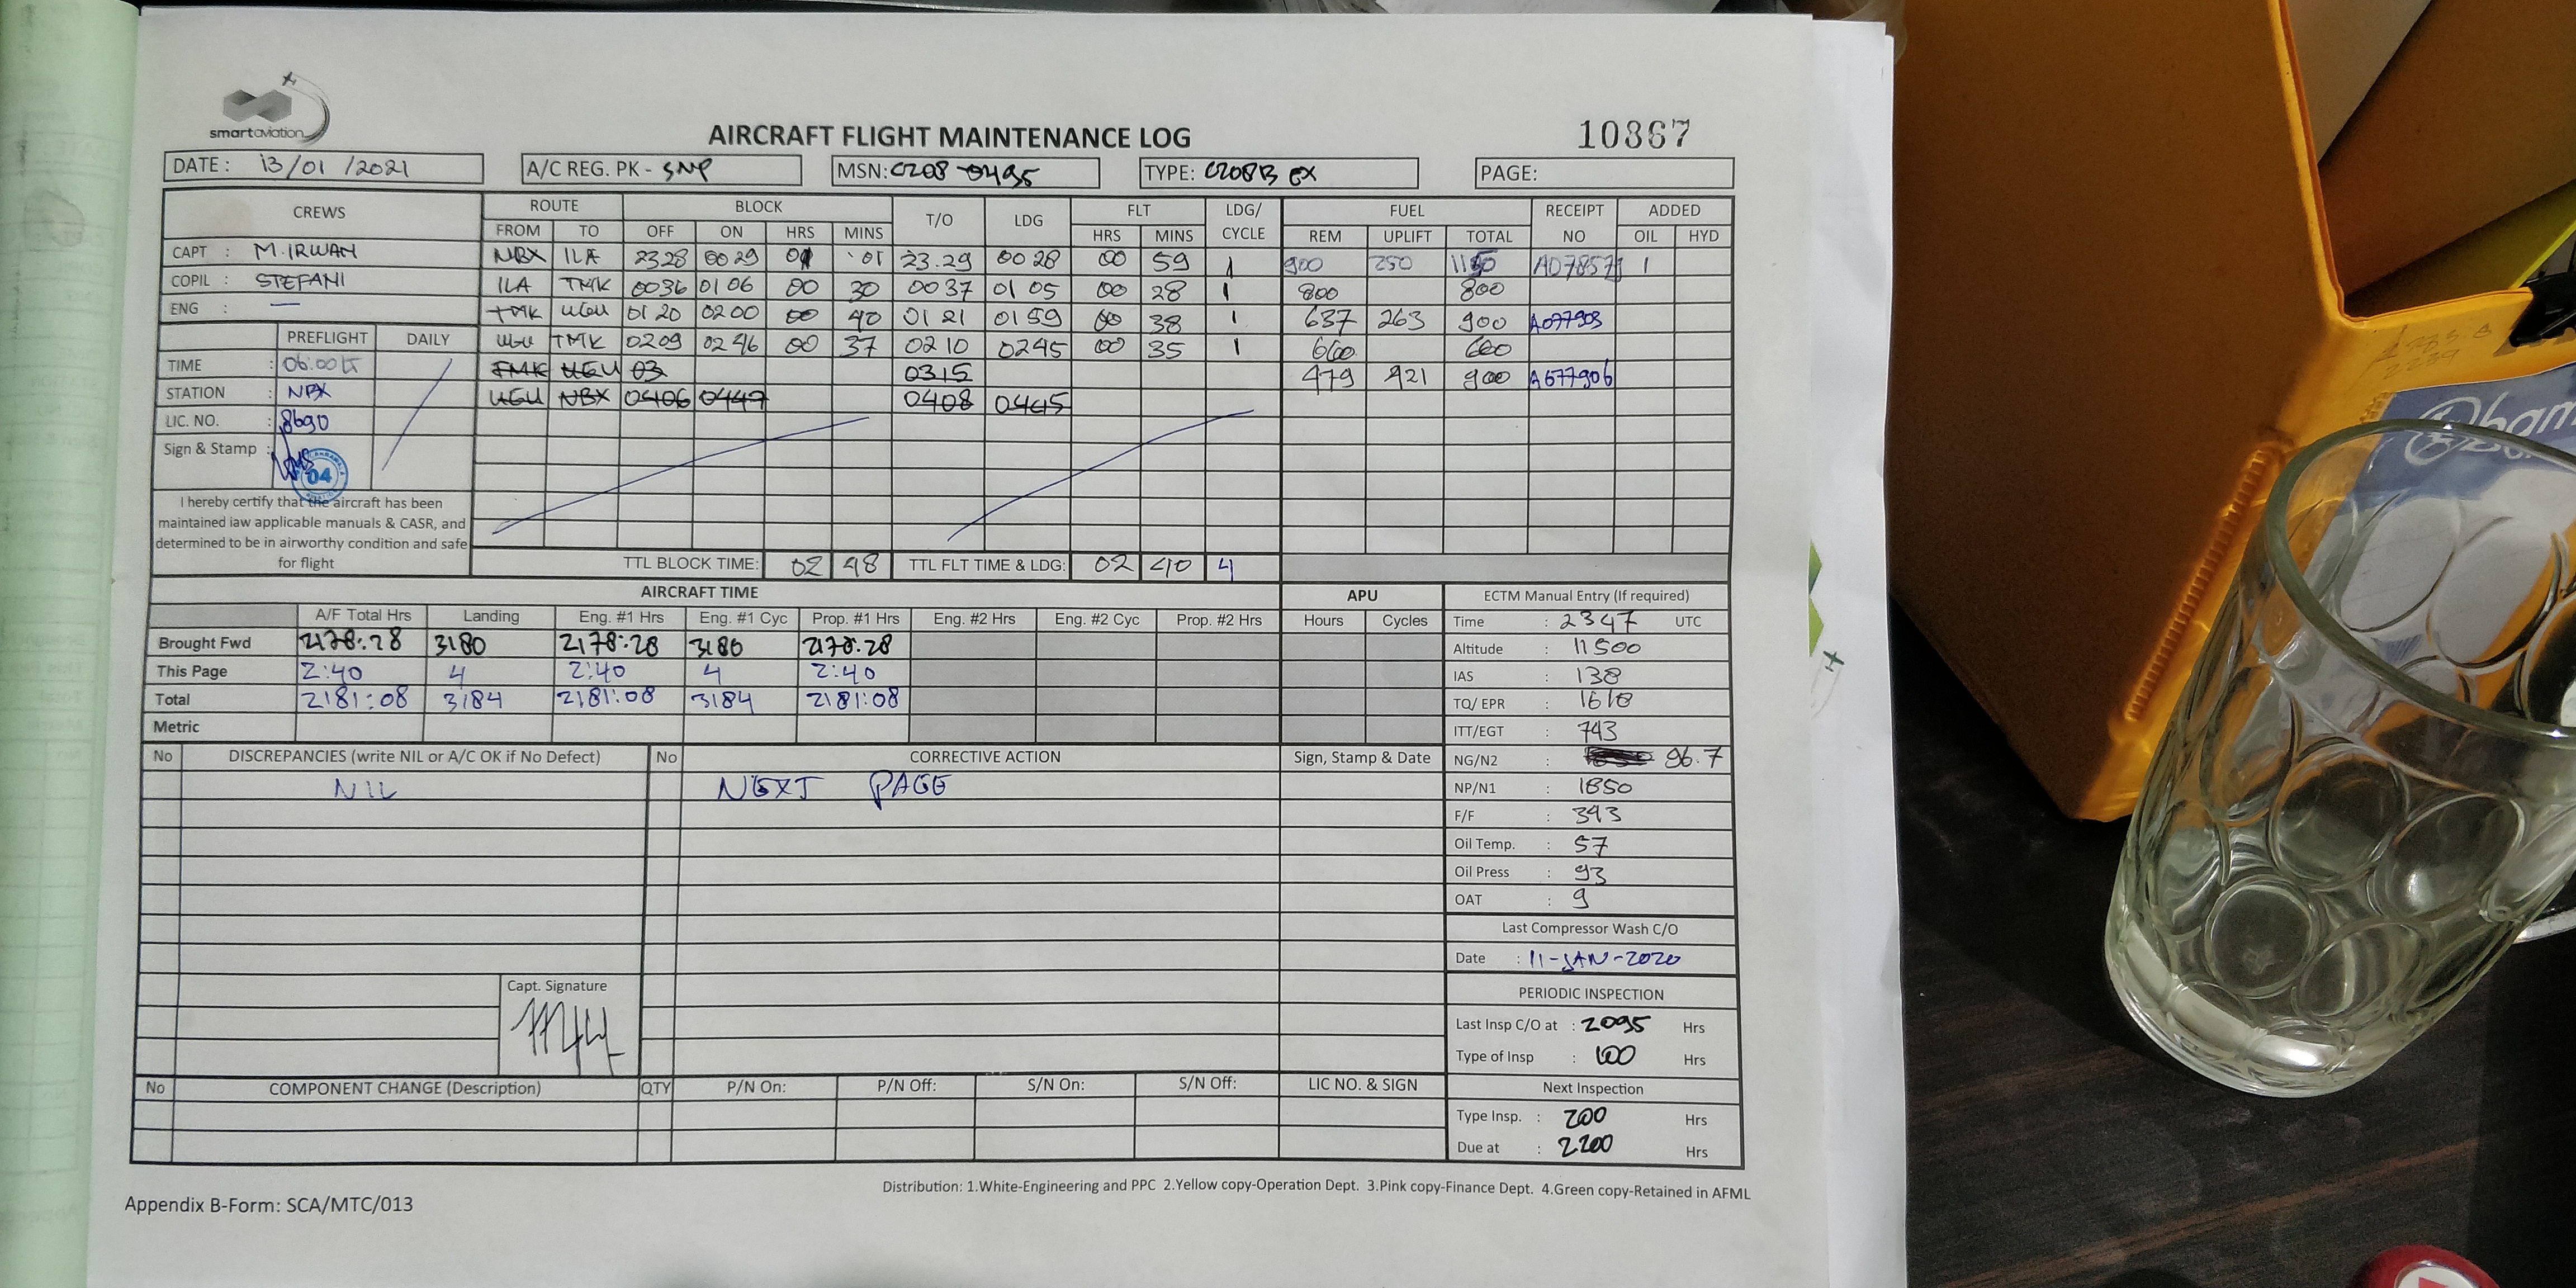 smartaviation
AIRCRAFT FLIGHT MAINTENANCE LOG
10867
DATE : 13/01/2021 A/C REG. PK - SNP MSN: C208-0495 TYPE: C208B EX PAGE:
CREWS ROUTE BLOCK T/O LDG FLT LDG/ CYCLE FUEL RECEIPT NO ADDED
FROM TO OFF ON HRS MINS HRS MINS REM UPLIFT TOTAL OIL HYD
CAPT : M. IRWAN NBX ILA 2328 0029 01 01 23.29 0028 00 59 1 900 250 1150 A07857 1
COPIL : STEFANI ILA TMK 0036 01 06 00 30 0037 01 05 00 28 1 800 800
ENG : — TMK UGU 01 20 02 00 00 40 01 21 01 59 00 38 1 637 263 900 A077903
PREFLIGHT DAILY UGU TMK 0209 02 46 00 37 0210 0245 00 35 1 660 660
TIME : 06:00 LT TMK UGU 03 0315 479 421 900 A677906
STATION : NBX UGU NBX 0406 0447 0408 0445
LIC. NO. : 8690
Sign & Stamp : 04
I hereby certify that the aircraft has been
maintained iaw applicable manuals & CASR, and
determined to be in airworthy condition and safe
for flight
TTL BLOCK TIME: 02 48 TTL FLT TIME & LDG: 02 40 4
AIRCRAFT TIME APU ECTM Manual Entry (If required)
A/F Total Hrs Landing Eng. #1 Hrs Eng. #1 Cyc Prop. #1 Hrs Eng. #2 Hrs Eng. #2 Cyc Prop. #2 Hrs Hours Cycles Time : 2347 UTC
Brought Fwd 2178:28 3180 2178:28 3180 2178:28 Altitude : 11500
This Page 2:40 4 2:40 4 2:40 IAS : 138
Total 2181:08 3184 2181:08 3184 2181:08 TQ/ EPR : 1610
Metric ITT/EGT : 743
No DISCREPANCIES (write NIL or A/C OK if No Defect) No CORRECTIVE ACTION Sign, Stamp & Date NG/N2 : 96.7
NIL NEXT PAGE NP/N1 : 1850
F/F : 343
Oil Temp. : 57
Oil Press : 93
OAT : 9
Last Compressor Wash C/O
Date : 11-JAN-2020
Capt. Signature
PERIODIC INSPECTION
Last Insp C/O at : 2095 Hrs
Type of Insp : 100 Hrs
No COMPONENT CHANGE (Description) QTY P/N On: P/N Off: S/N On: S/N Off: LIC NO. & SIGN Next Inspection
Type Insp. : 200 Hrs
Due at : 2200 Hrs
Distribution: 1.White-Engineering and PPC 2.Yellow copy-Operation Dept. 3.Pink copy-Finance Dept. 4.Green copy-Retained in AFML
Appendix B-Form: SCA/MTC/013